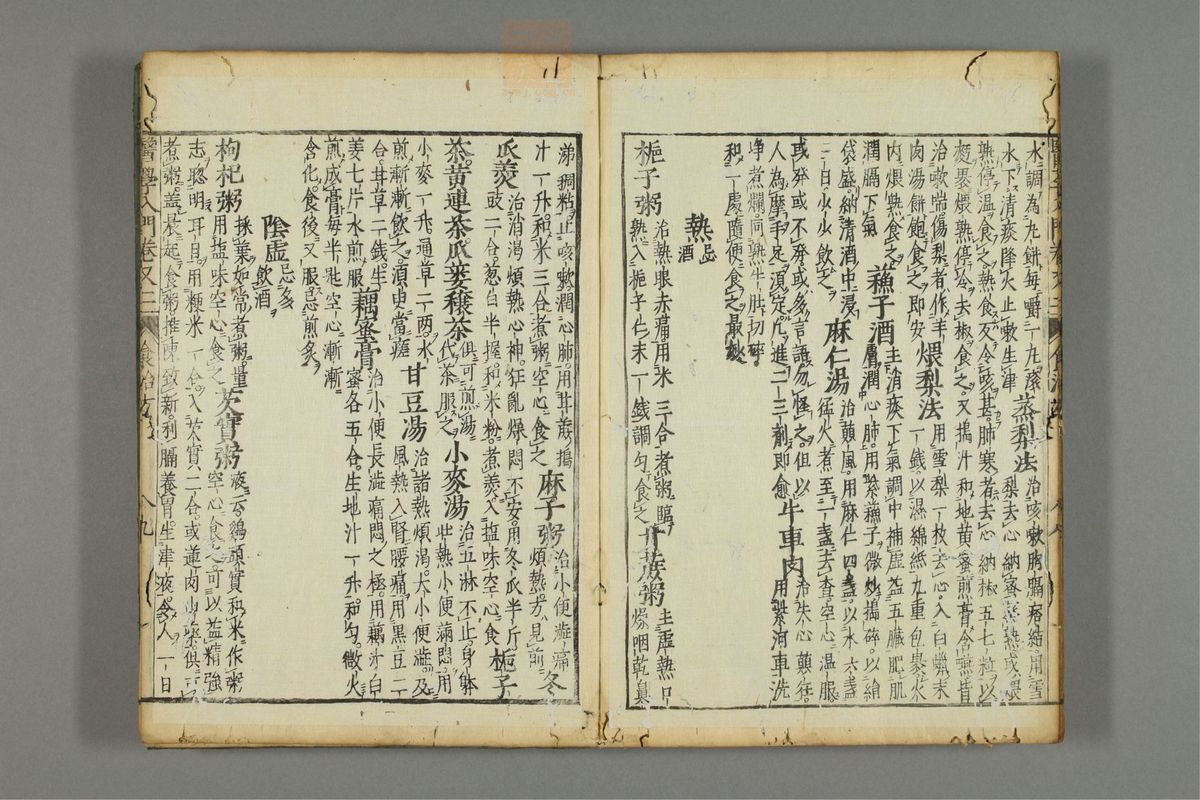 水調為丸餅每嚼一丸滾
水下清痰降火止嗽生津
蒸梨法
治咳嗽胸膈痞結用雪
梨去心納蜜蒸熟或煨
熟停溫食之熱食反令咳甚肺寒者去心納椒五七粒以
麵裹煨熟停冷去椒食之又搗汁和地黃蜜煎膏含嚥昔
治嗽喘傷梨者作羊
肉湯餅飽食之即安
煨梨法
用雪梨一枚去心入白蠟末
一錢以濕綿紙九重包裹火
內煨熟食之
潤膈下氣
蘇子酒
主消痰下氣調中補虛益五臟肥肌
膚潤心肺用紫蘇子微炒搗碎以絹
袋盛納清酒中浸
三日少少飲之
麻仁湯
治顛風用麻仁四盞以水六盞
猛火煮至二盞去查空心溫服
或發或不發或多言語勿怪之但以
人為摩手足須定凡進二三劑即愈
牛車肉
治失心顛狂
用紫河車洗
淨煮爛同熟牛肚切碎
和一處隨便食之最妙
熱
忌酒
梔子粥
治熱眼赤痛用米三合煮粥臨
熟入梔子仁末一錢調勻食之
甘蔗粥
主虛熱口
燥咽乾鼻
涕稠粘止咳嗽潤心肺用甘蔗搗
汁一升和米三合煮粥空心食之
麻子粥
治小便澁痛
煩熱方見前
冬
瓜羹
治消渴煩熱心神狂亂燥悶不安用冬瓜半斤
豉二合葱白半握和米粉煮羹入塩味空心食
梔子
茶黄連茶瓜蔞穰茶
俱可煎湯
代茶服之
小麥湯
治五淋不止身躰
壯熱小便滿悶用
小麥一升通草二兩水
煎漸漸飲之須臾當瘥
甘豆湯
治諸熱煩渴大小便澁及
風熱入腎腰痛用黑豆二
合甘草二錢生
姜七片水煎服
藕蜜膏
治小便長澁痛悶之極用藕汁白
蜜各五合生地汁一升和勻微火
煎成膏每半匙空心漸漸
含化食後又服忌煎炙
陰虛
忌多飲酒
枸杞粥
採葉如常煮粥量
用塩味空心食之
芡實粥
液一云鷄頭實和米作粥
空心食之可以益精強
志聰明耳目用粳米一合入芡實二合或蓮肉山藥俱可
煮粥蓋晨起食粥推陳致新利膈養胃生津液令人一日
醫學入門卷又三
食治方
八九